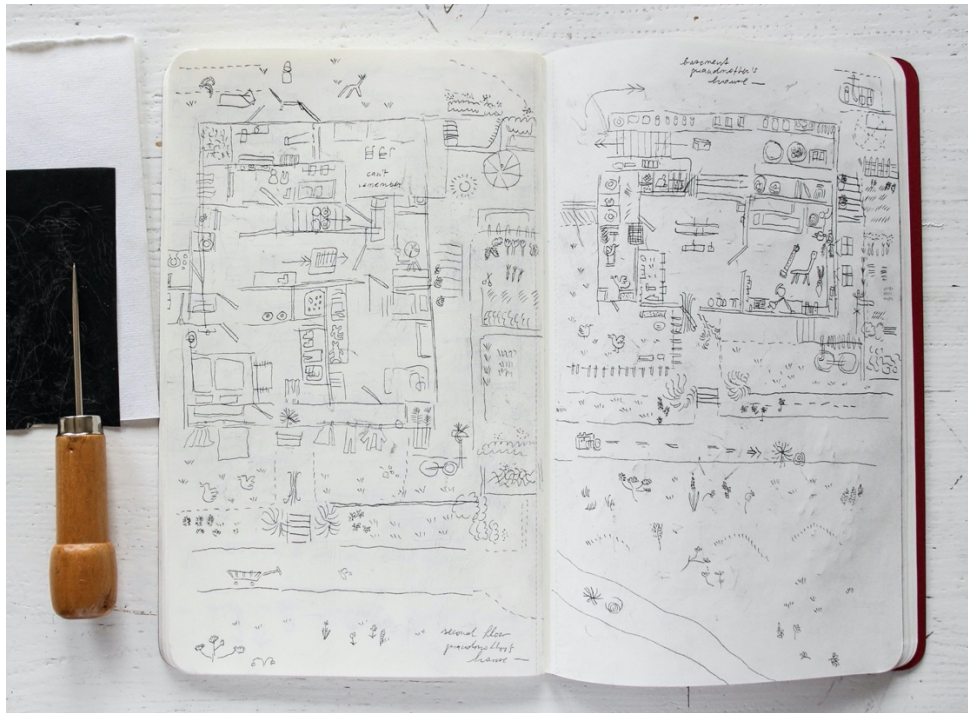 can't
remember
second floor
grandmother's
house —
basement
grandmother's
house —